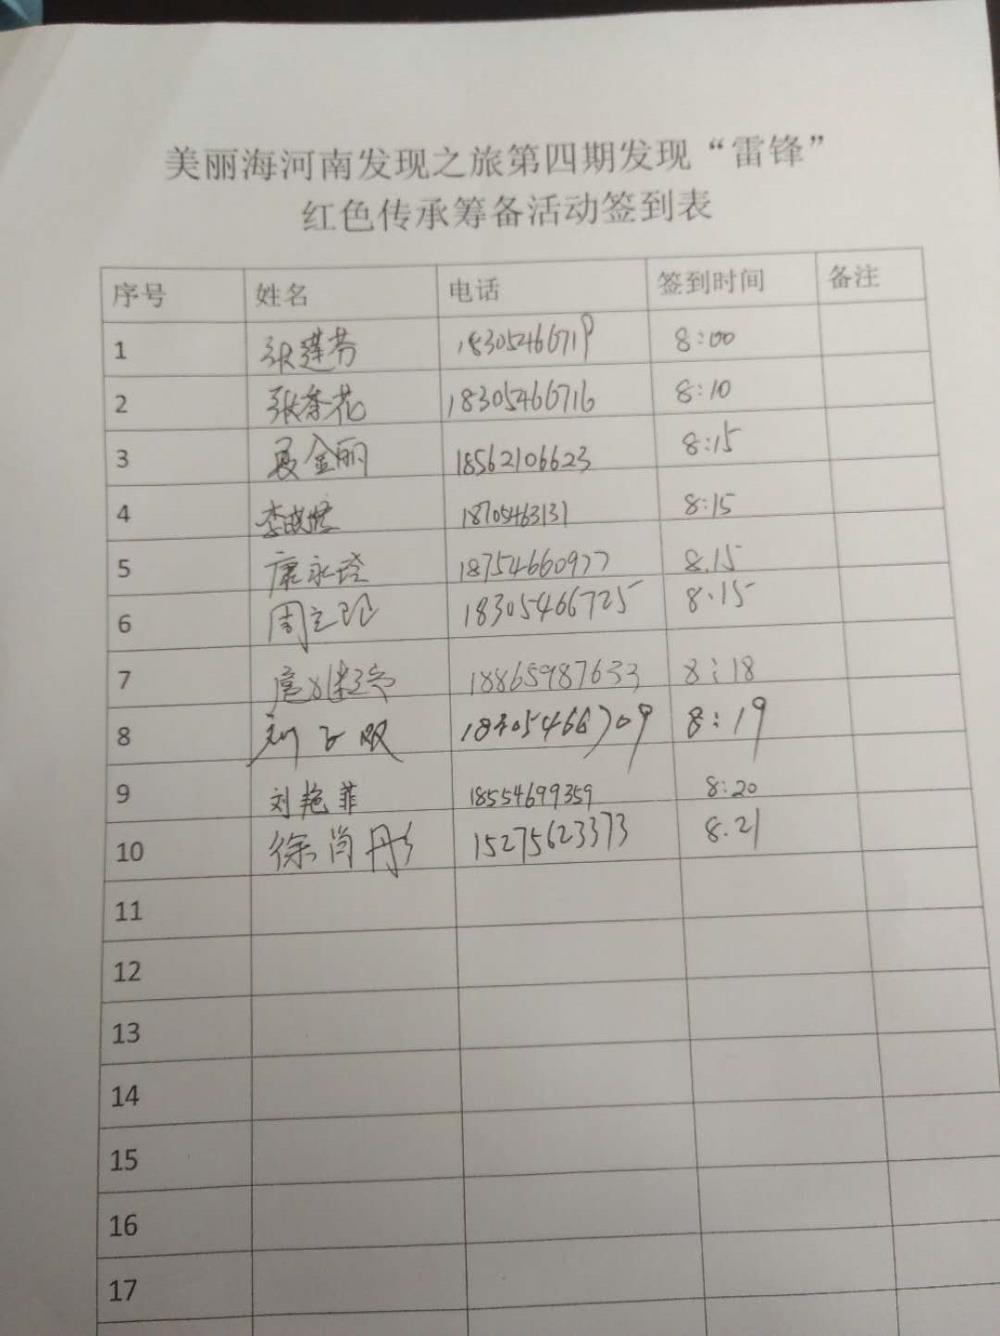 美丽海河南发现之旅第四期发现“雷锋”
红色传承筹备活动签到表
序号 姓名 电话 签到时间 备注
1 张莲芬 18305466719 8:00
2 张春花 18305466716 8:10
3 夏金丽 18562106623 8:15
4 李 18705463131 8:15
5 康永 18754660977 8.15
6 周立 18305466725 8.15
7 18865987633 8:18
8 刘 18305466709 8:19
9 刘艳菲 18554699359 8:20
10 徐尚彤 15275623373 8.21
11
12
13
14
15
16
17